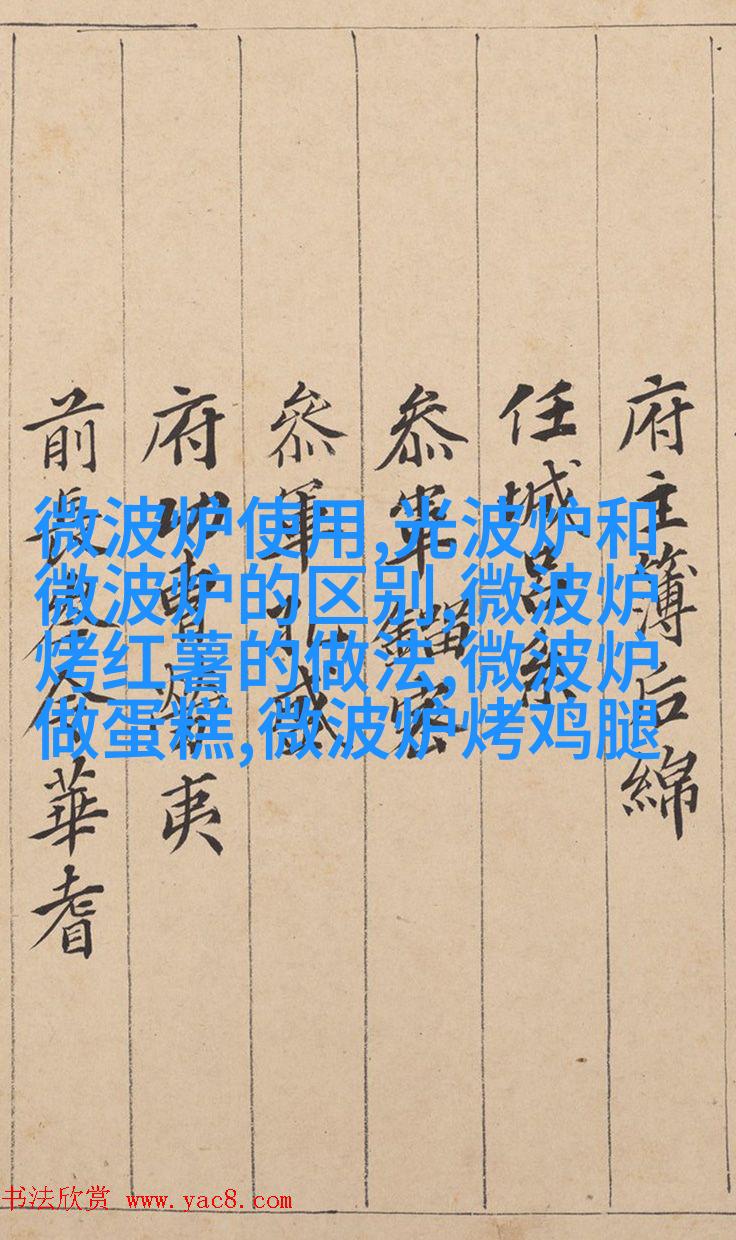 微波炉使用,光波炉和
微波炉的区别,微波炉
烤红薯的做法,微波炉
做蛋糕,微波炉烤鸡腿
府主簿后綿
任城呂系
叅軍鎦密
叅軍孔盛
府功曹勞夷
前長岑令華耆
书法欣赏 www.yac8.com